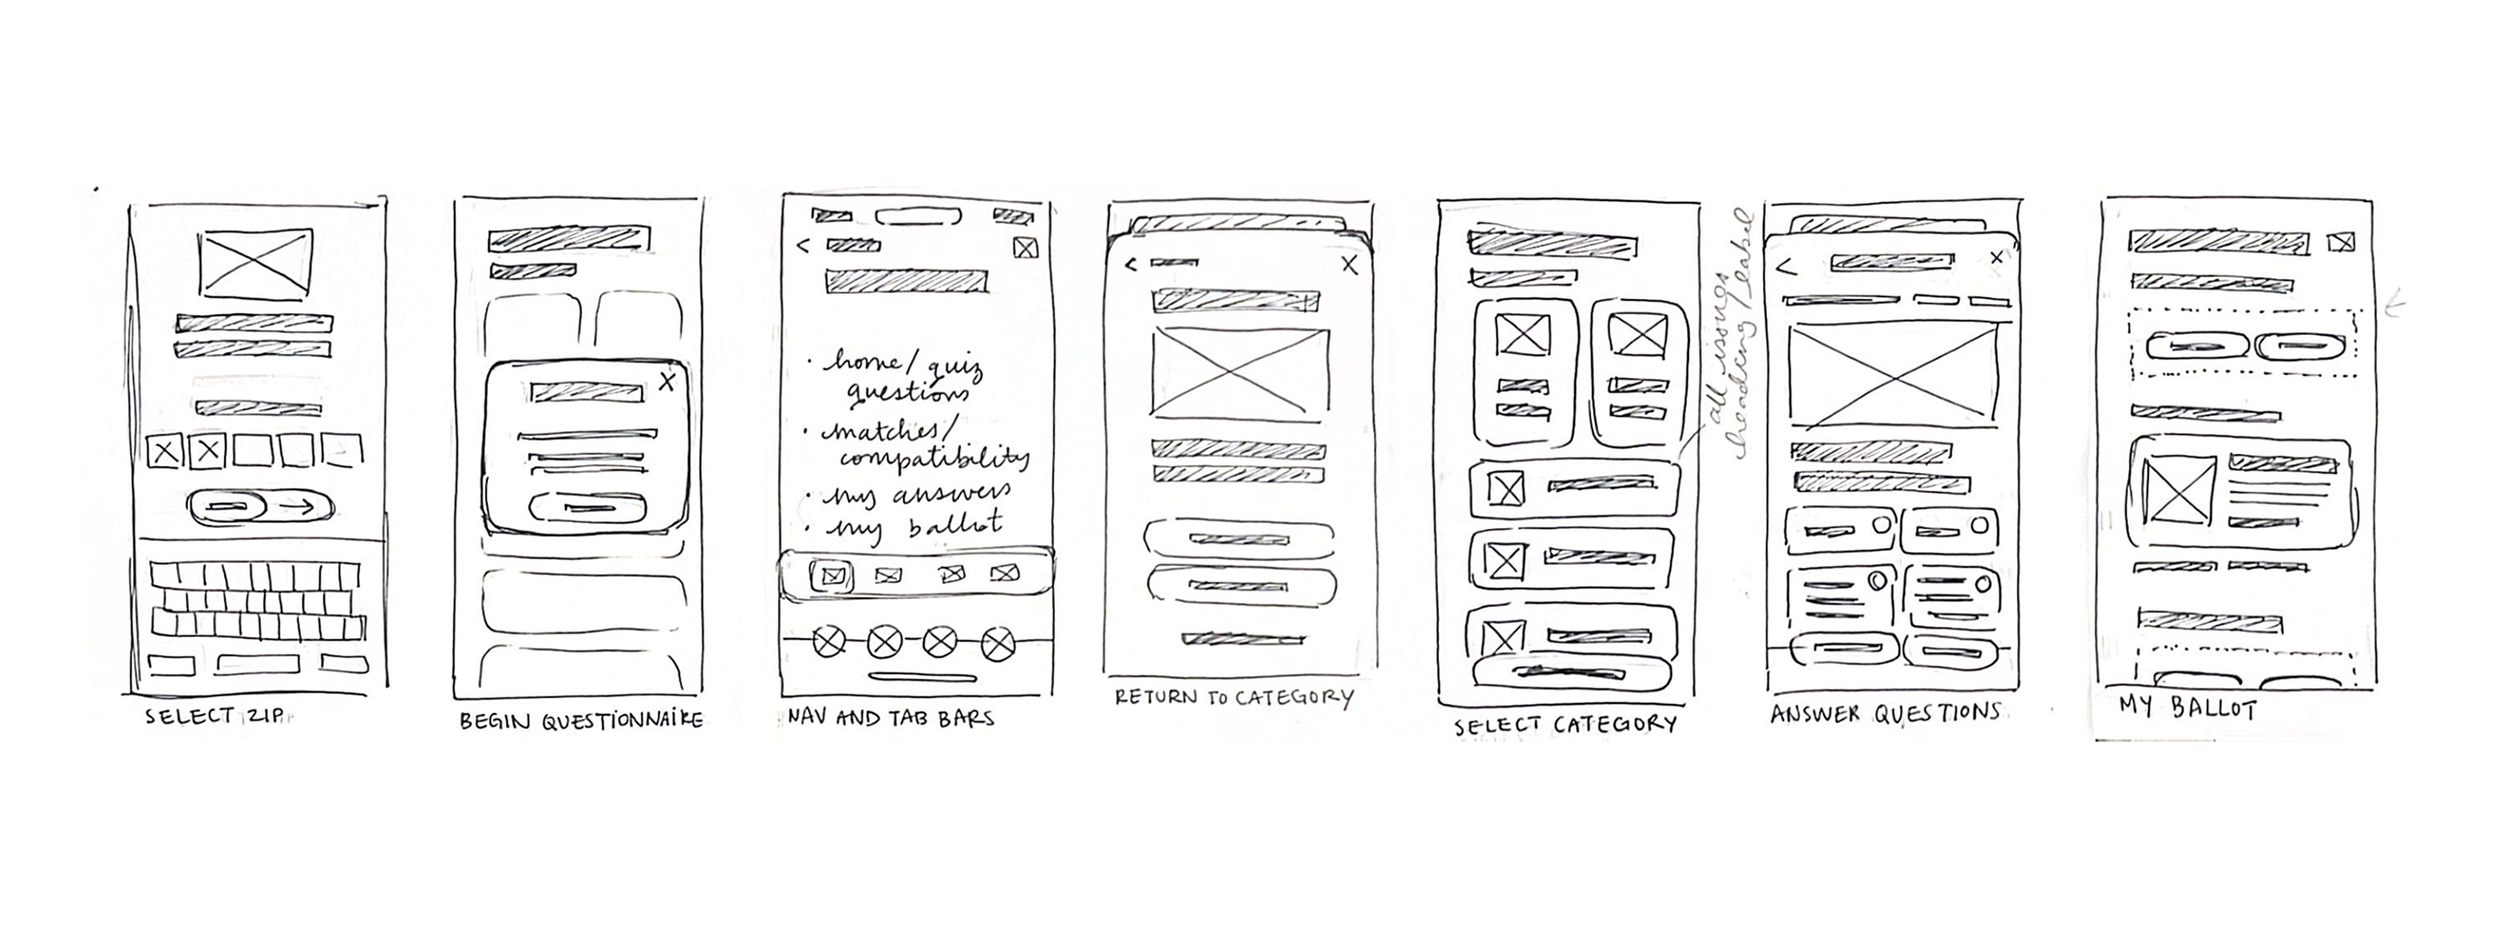 SELECT ZIP
BEGIN QUESTIONNAIRE
• home/quiz
questions
• matches/
compatibility
• my answers
• my ballot
NAV AND TAB BARS
RETURN TO CATEGORY
SELECT CATEGORY
all issues
heading/label
ANSWER QUESTIONS
MY BALLOT